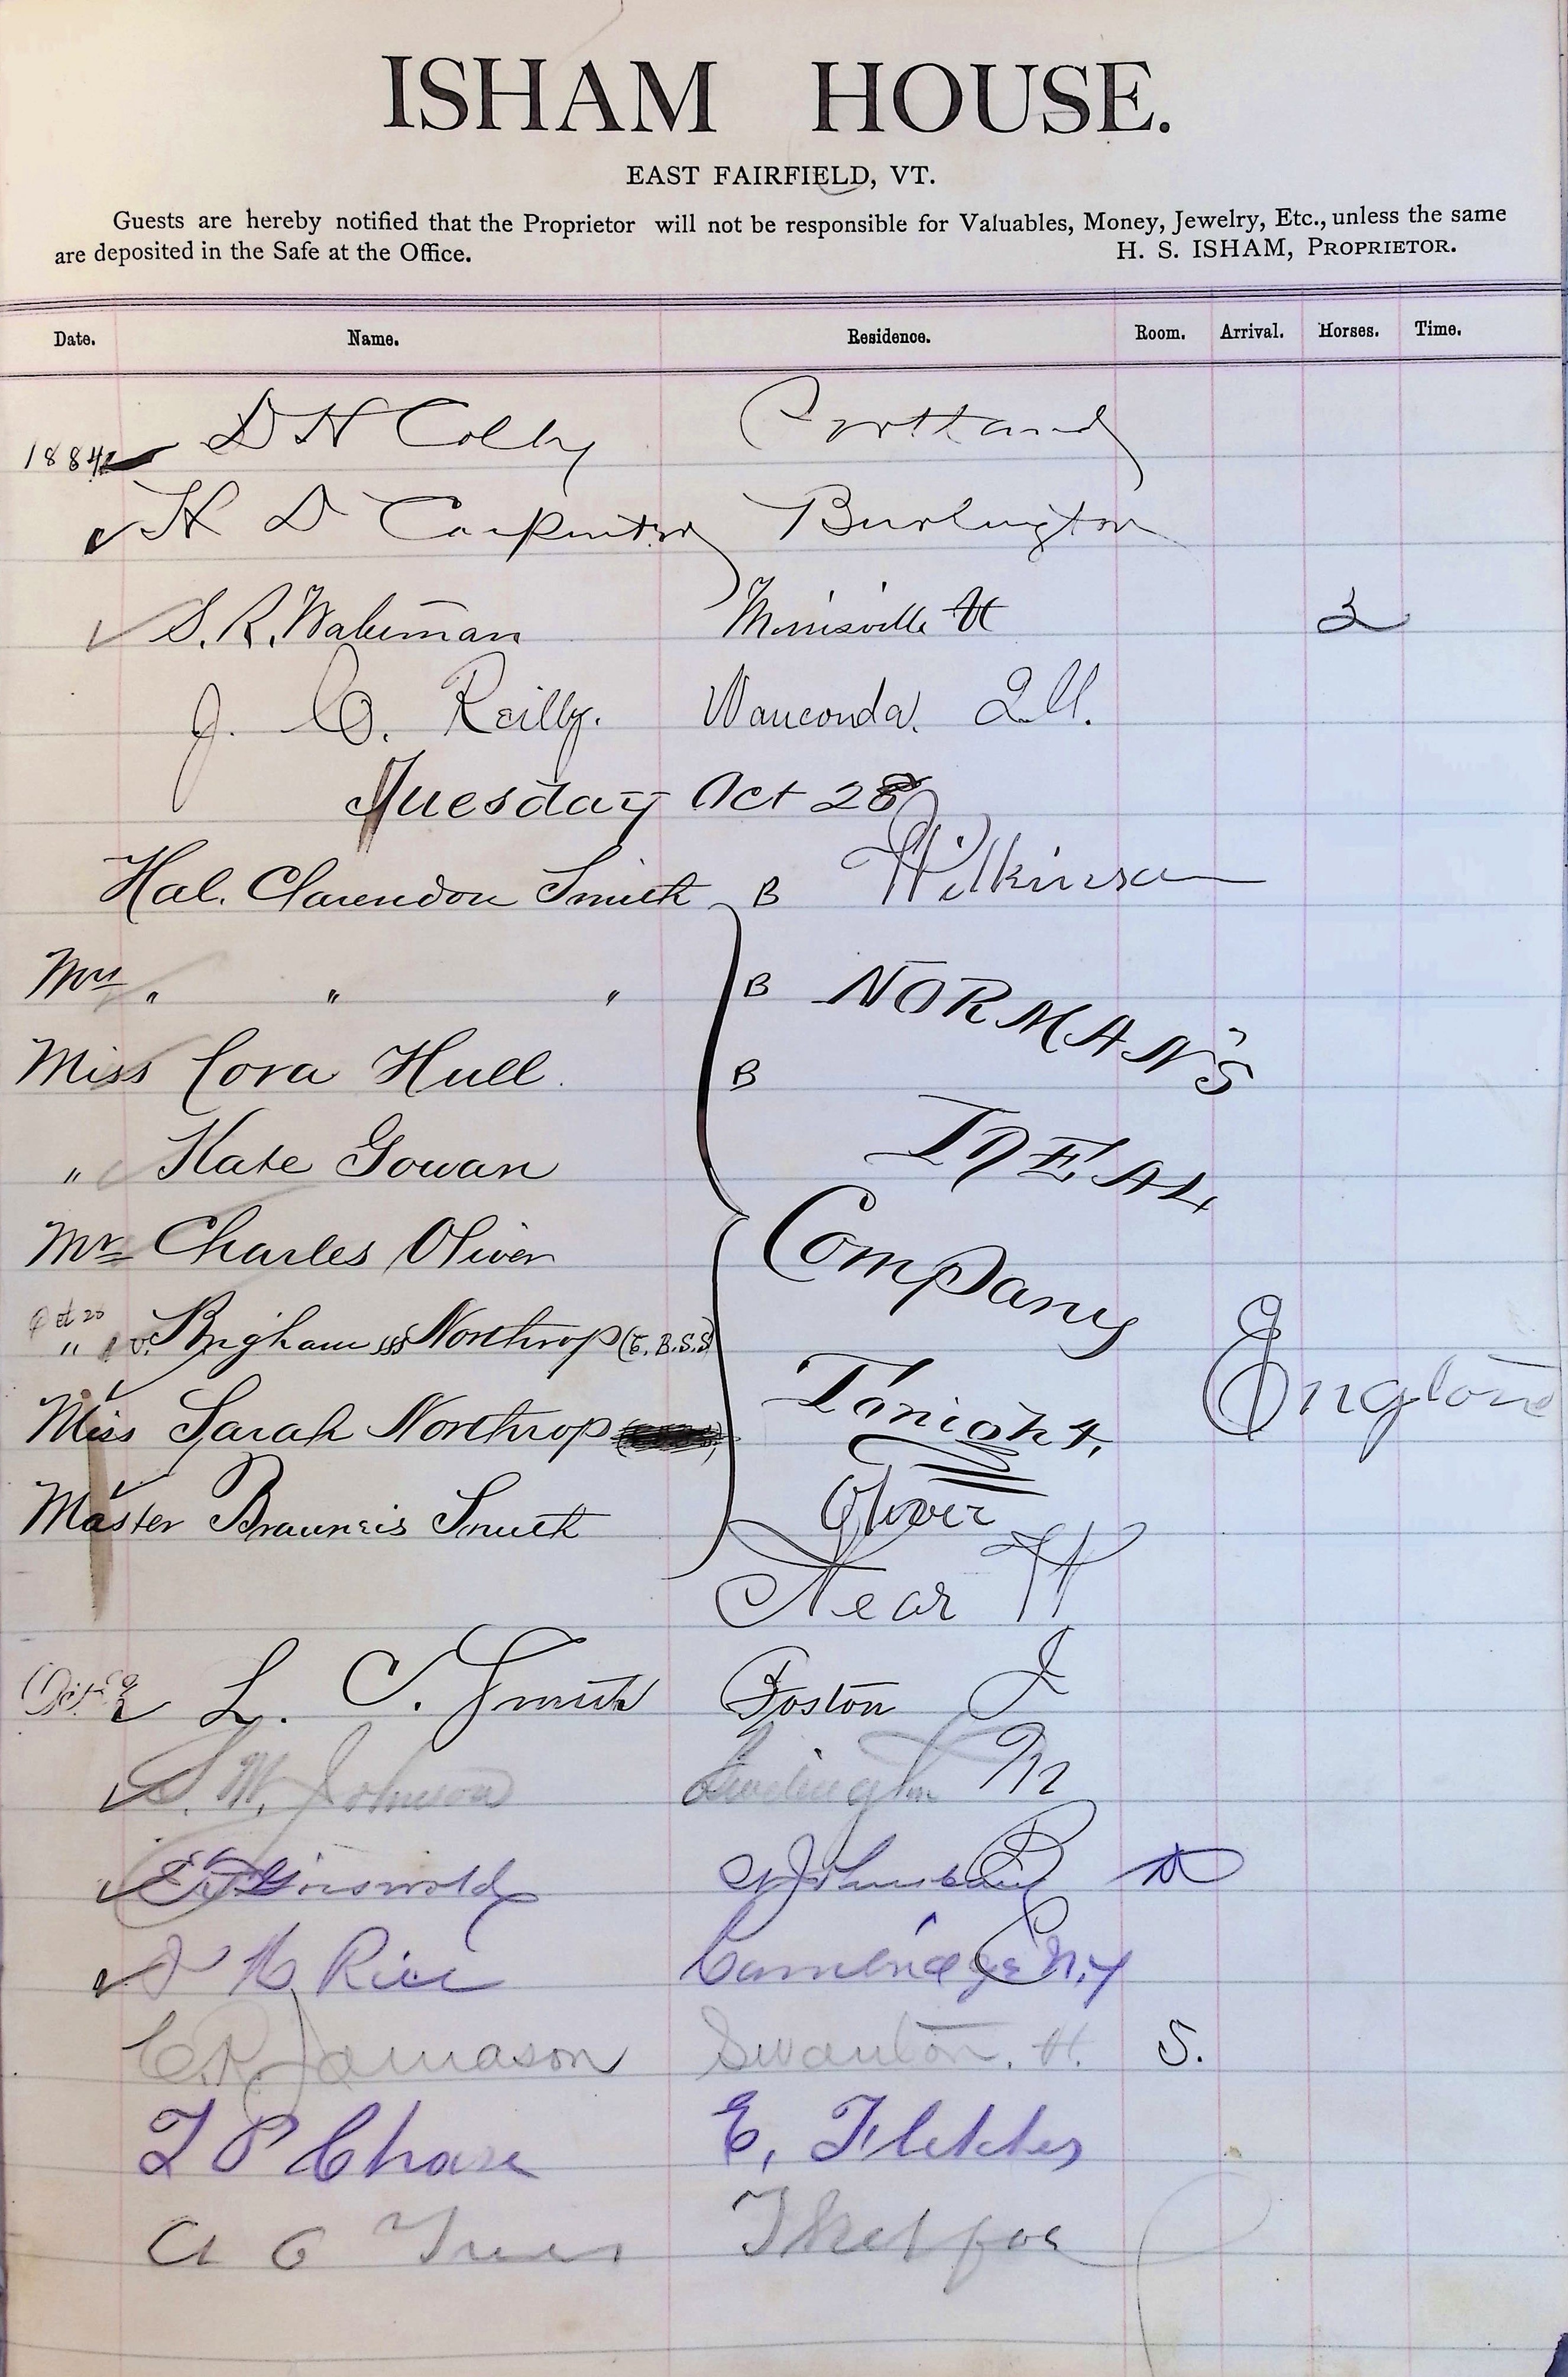 ISHAM HOUSE.
EAST FAIRFIELD, VT.
Guests are hereby notified that the Proprietor will not be responsible for Valuables, Money, Jewelry, Etc., unless the same
are deposited in the Safe at the Office. H. S. ISHAM, PROPRIETOR.
Date. Name. Residence. Room. Arrival. Horses. Time.
1884 D H Colby Portland
H D Carpenter Burlington
S. R. Wakeman Morrisville Vt 2
J. O. Reilly. Wauconda. Ill.
Tuesday Oct 28
Hal. Clarendon Smith B Wilkinson
Mrs " " " B NORMAN'S
Miss Cora Hull. B
" Kate Gowan IDEAL
Mr Charles Oliver Company
Oct 28
" Brigham Northrop (E. B. S. S) England
Miss Sarah Northrop Tonight.
Master Brauneis Smith Oliver
Near
Oct 29 L. C. Smith Boston
S. M. Johnson Burlington
Griswold St Johnsbury
Rice Cambridge N.Y
C. R. Jamason Swanton. Vt. S.
T P Chase E. Fletcher
A O